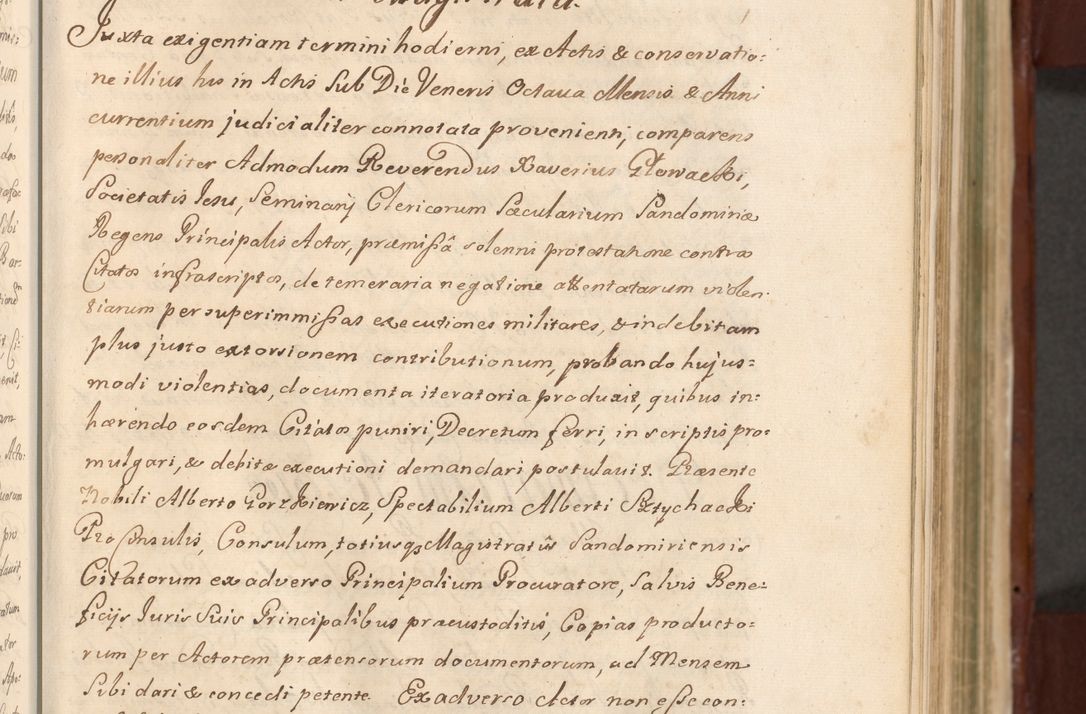 Juxta exigentiam termini hodierni, ex Actis & conservatio:
ne illius his in Actis Sub Die Veneris Octava Mensis & Anni
currentium judicialiter connotata provenienti, comparens
personaliter Admodum Reverendus Xaverius Głowacki,
Societatis Iesu, Seminarij Clericorum Sæcularium Sandomiriæ
Regens Principalis Actor, præmißâ solenni protestatione contra
Citatos infrascriptos, de temeraria negatione attentatarum violen:
tiarum per superimmißas executiones militares, & indebitam
plus justo extorsionem contributionum, probando hujus=
modi violentias, documenta iteratoria produxit, quibus in:
hærendo eosdem Citatos puniri, Decretum ferri, in scriptis pro:
mulgari, & debitæ executioni demandari postulavit. Præsente
Nobili Alberto Gorzkiewicz, Spectabilium Alberti Sztychacki
Pro Consulis, Consulum, totiusq3 Magistratûs Sandomiriensis
Citatorum ex adverso Principalium Procuratore, Salvis Bene:
ficijs Iuris Suis Principalibus præcustoditis, Copias producto:
rum per Actorem prætensorum documentorum, ad Mensem
Sibi dari & concedi petente. Ex adverso Actor non eße con: